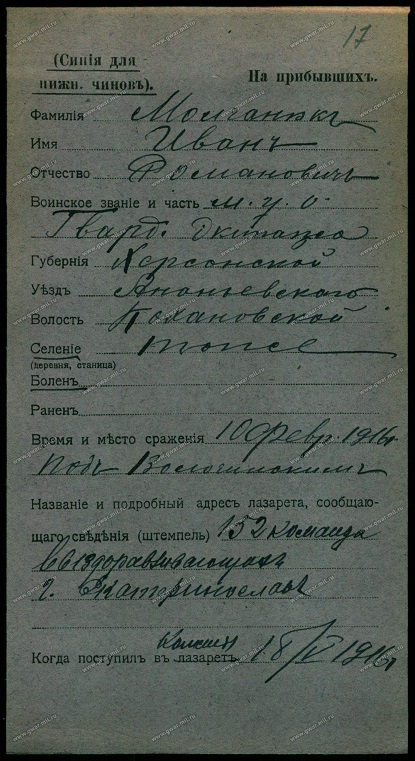 17
(Синія для
нижн. чиновъ).
На прибывшихъ.
Фамилія Молчанюкъ
Имя Иванъ
Отчество Романовичъ
Воинское званіе и часть м. у. о.
Гвард. Экипажа
Губернія Херсонской
Уѣздъ Ананьевскаго
Волость
Селеніе тоже
(деревня, станица)
Боленъ
Раненъ
Время и мѣсто сраженія 10 Февр. 1916 г.
подъ
Названіе и подробный адресъ лазарета, сообщаю-
щаго свѣдѣнія (штемпель) 152 команда
Выздоравливающихъ
г. Екатеринославъ
Когда поступилъ въ лазаретъ 18/V 1916 г.
www.gwar.mil.ru